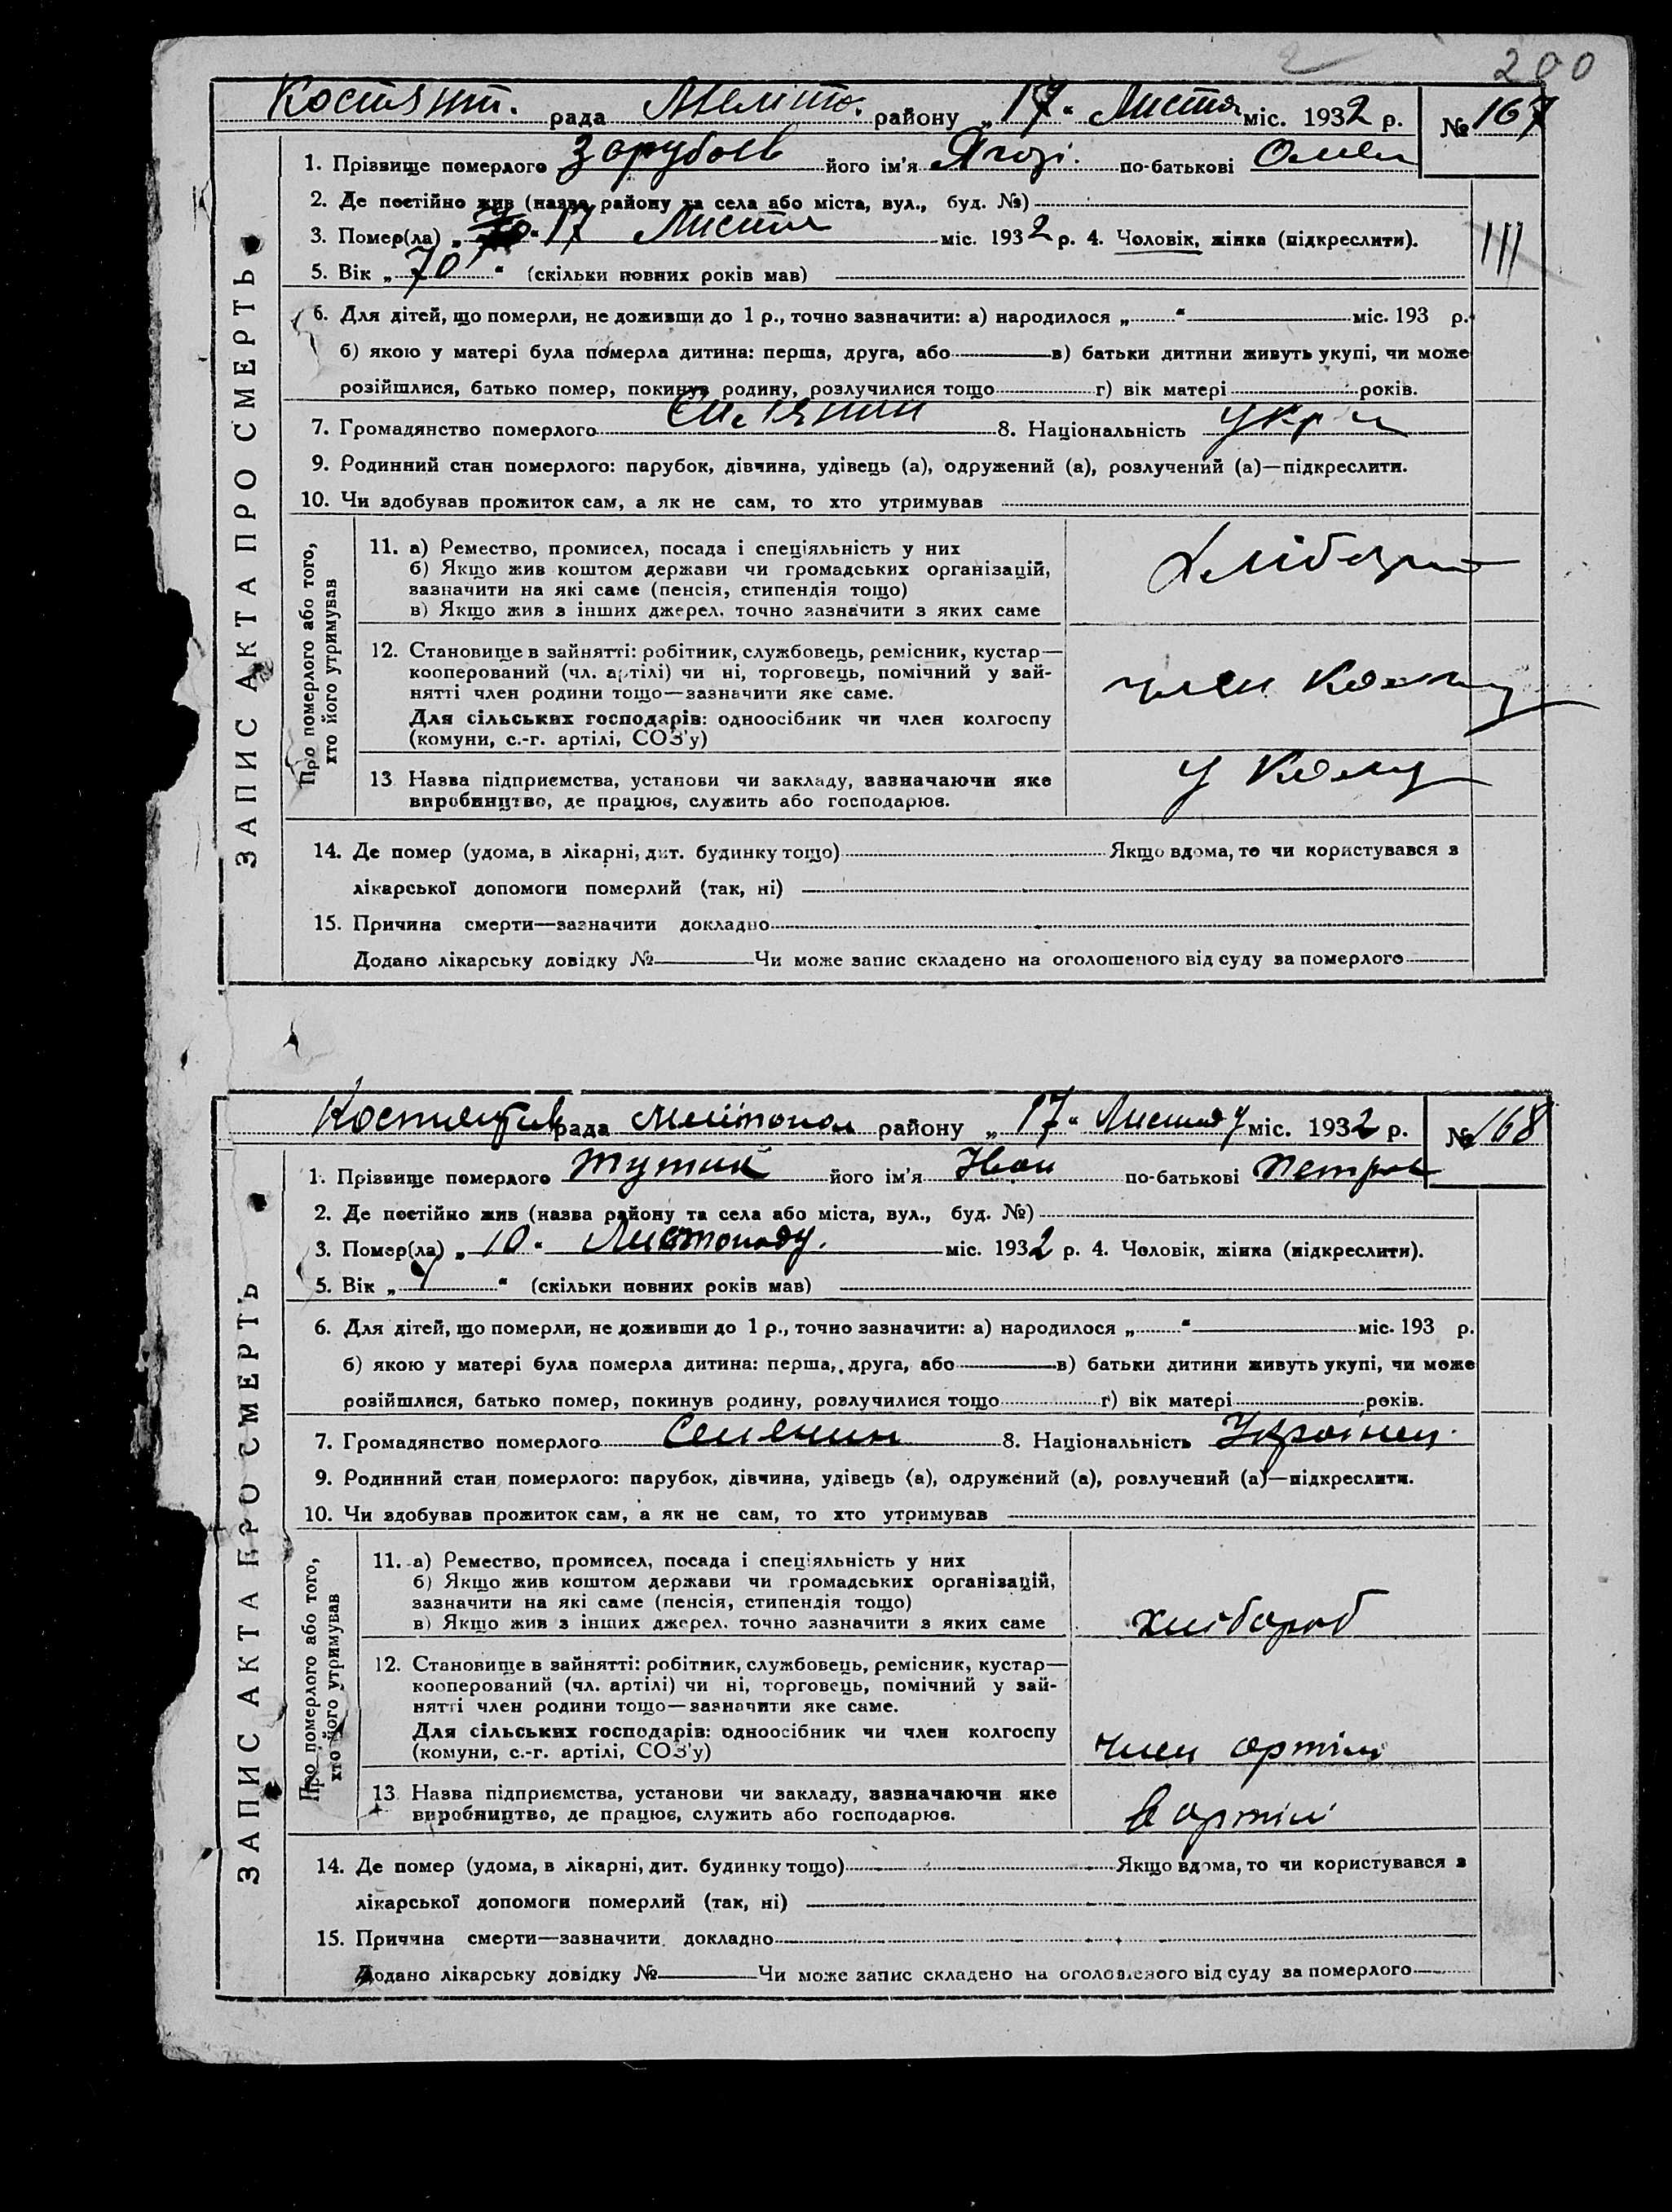 200
Костянт. рада Меліто. району „17" Листя міс. 1932 р. № 167
1. Прізвище померлого Зарубаєв його ім'я по-батькові Олек
2. Де постійно жив (назва району та села або міста, вул., буд. №)
3. Помер(ла) „ " 17 Листя міс. 1932 р. 4. Чоловік, жінка (підкреслити).
5. Вік „70" (скільки повних років мав)
III
6. Для дітей, що померли, не доживши до 1 р., точно зазначити: а) народилося „ " міс. 193 р.
б) якою у матері була померла дитина: перша, друга, або в) батьки дитини живуть укупі, чи може
розійшлися, батько помер, покинув родину, розлучилися тощо г) вік матері років.
7. Громадянство померлого Селянин 8. Національність Укр
9. Родинний стан померлого: парубок, дівчина, удівець (а), одружений (а), розлучений (а)—підкреслити.
10. Чи здобував прожиток сам, а як не сам, то хто утримував
ЗАПИС АКТА ПРО СМЕРТЬ
Про померлого або того,
хто його утримував
11. а) Ремество, промисел, посада і спеціяльність у них
б) Якщо жив коштом держави чи громадських організацій,
зазначити на які саме (пенсія, стипендія тощо)
в) Якщо жив з інших джерел. точно зазначити з яких саме
12. Становище в зайнятті: робітник, службовець, ремісник, кустар—
кооперований (чл. артілі) чи ні, торговець, помічний у зай-
нятті член родини тощо—зазначити яке саме.
член
Для сільських господарів: одноосібник чи член колгоспу
(комуни, с.-г. артілі, СОЗ'у)
13 Назва підприємства, установи чи закладу, зазначаючи яке
виробництво, де працює, служить або господарює.
у
14. Де помер (удома, в лікарні, дит. будинку тощо) Якщо вдома, то чи користувався з
лікарської допомоги померлий (так, ні)
15. Причина смерти—зазначити докладно
Додано лікарську довідку № Чи може запис складено на оголошеного від суду за померлого
рада Мелітопол району „17" міс. 1932 р. № 168
1. Прізвище померлого його ім'я Іван по-батькові Петров
2. Де постійно жив (назва району та села або міста, вул., буд. №)
3. Помер(ла) „10" Листопаду. міс. 1932 р. 4. Чоловік, жінка (підкреслити).
5. Вік „ " (скільки повних років мав)
6. Для дітей, що померли, не доживши до 1 р., точно зазначити: а) народилося „ " міс. 193 р.
б) якою у матері була померла дитина: перша, друга, або в) батьки дитини живуть укупі, чи може
розійшлися, батько помер, покинув родину, розлучилися тощо г) вік матері років.
7. Громадянство померлого Селянин 8. Національність Українец.
9. Родинний стан померлого: парубок, дівчина, удівець (а), одружений (а), розлучений (а)—підкреслити.
10. Чи здобував прожиток сам, а як не сам, то хто утримував
ЗАПИС АКТА ПРО СМЕРТЬ
Про померлого або того,
хто його утримував
11. а) Ремество, промисел, посада і спеціяльність у них
б) Якщо жив коштом держави чи громадських організацій,
зазначити на які саме (пенсія, стипендія тощо)
в) Якщо жив з інших джерел. точно зазначити з яких саме
хлібороб
12. Становище в зайнятті: робітник, службовець, ремісник, кустар—
кооперований (чл. артілі) чи ні, торговець, помічний у зай-
нятті член родини тощо—зазначити яке саме.
Для сільських господарів: одноосібник чи член колгоспу
(комуни, с.-г. артілі, СОЗ'у)
член артіли
13 Назва підприємства, установи чи закладу, зазначаючи яке
виробництво, де працює, служить або господарює.
в артілі
14. Де помер (удома, в лікарні, дит. будинку тощо) Якщо вдома, то чи користувався з
лікарської допомоги померлий (так, ні)
15. Причина смерти—зазначити докладно
Додано лікарську довідку № Чи може запис складено на оголошеного від суду за померлого